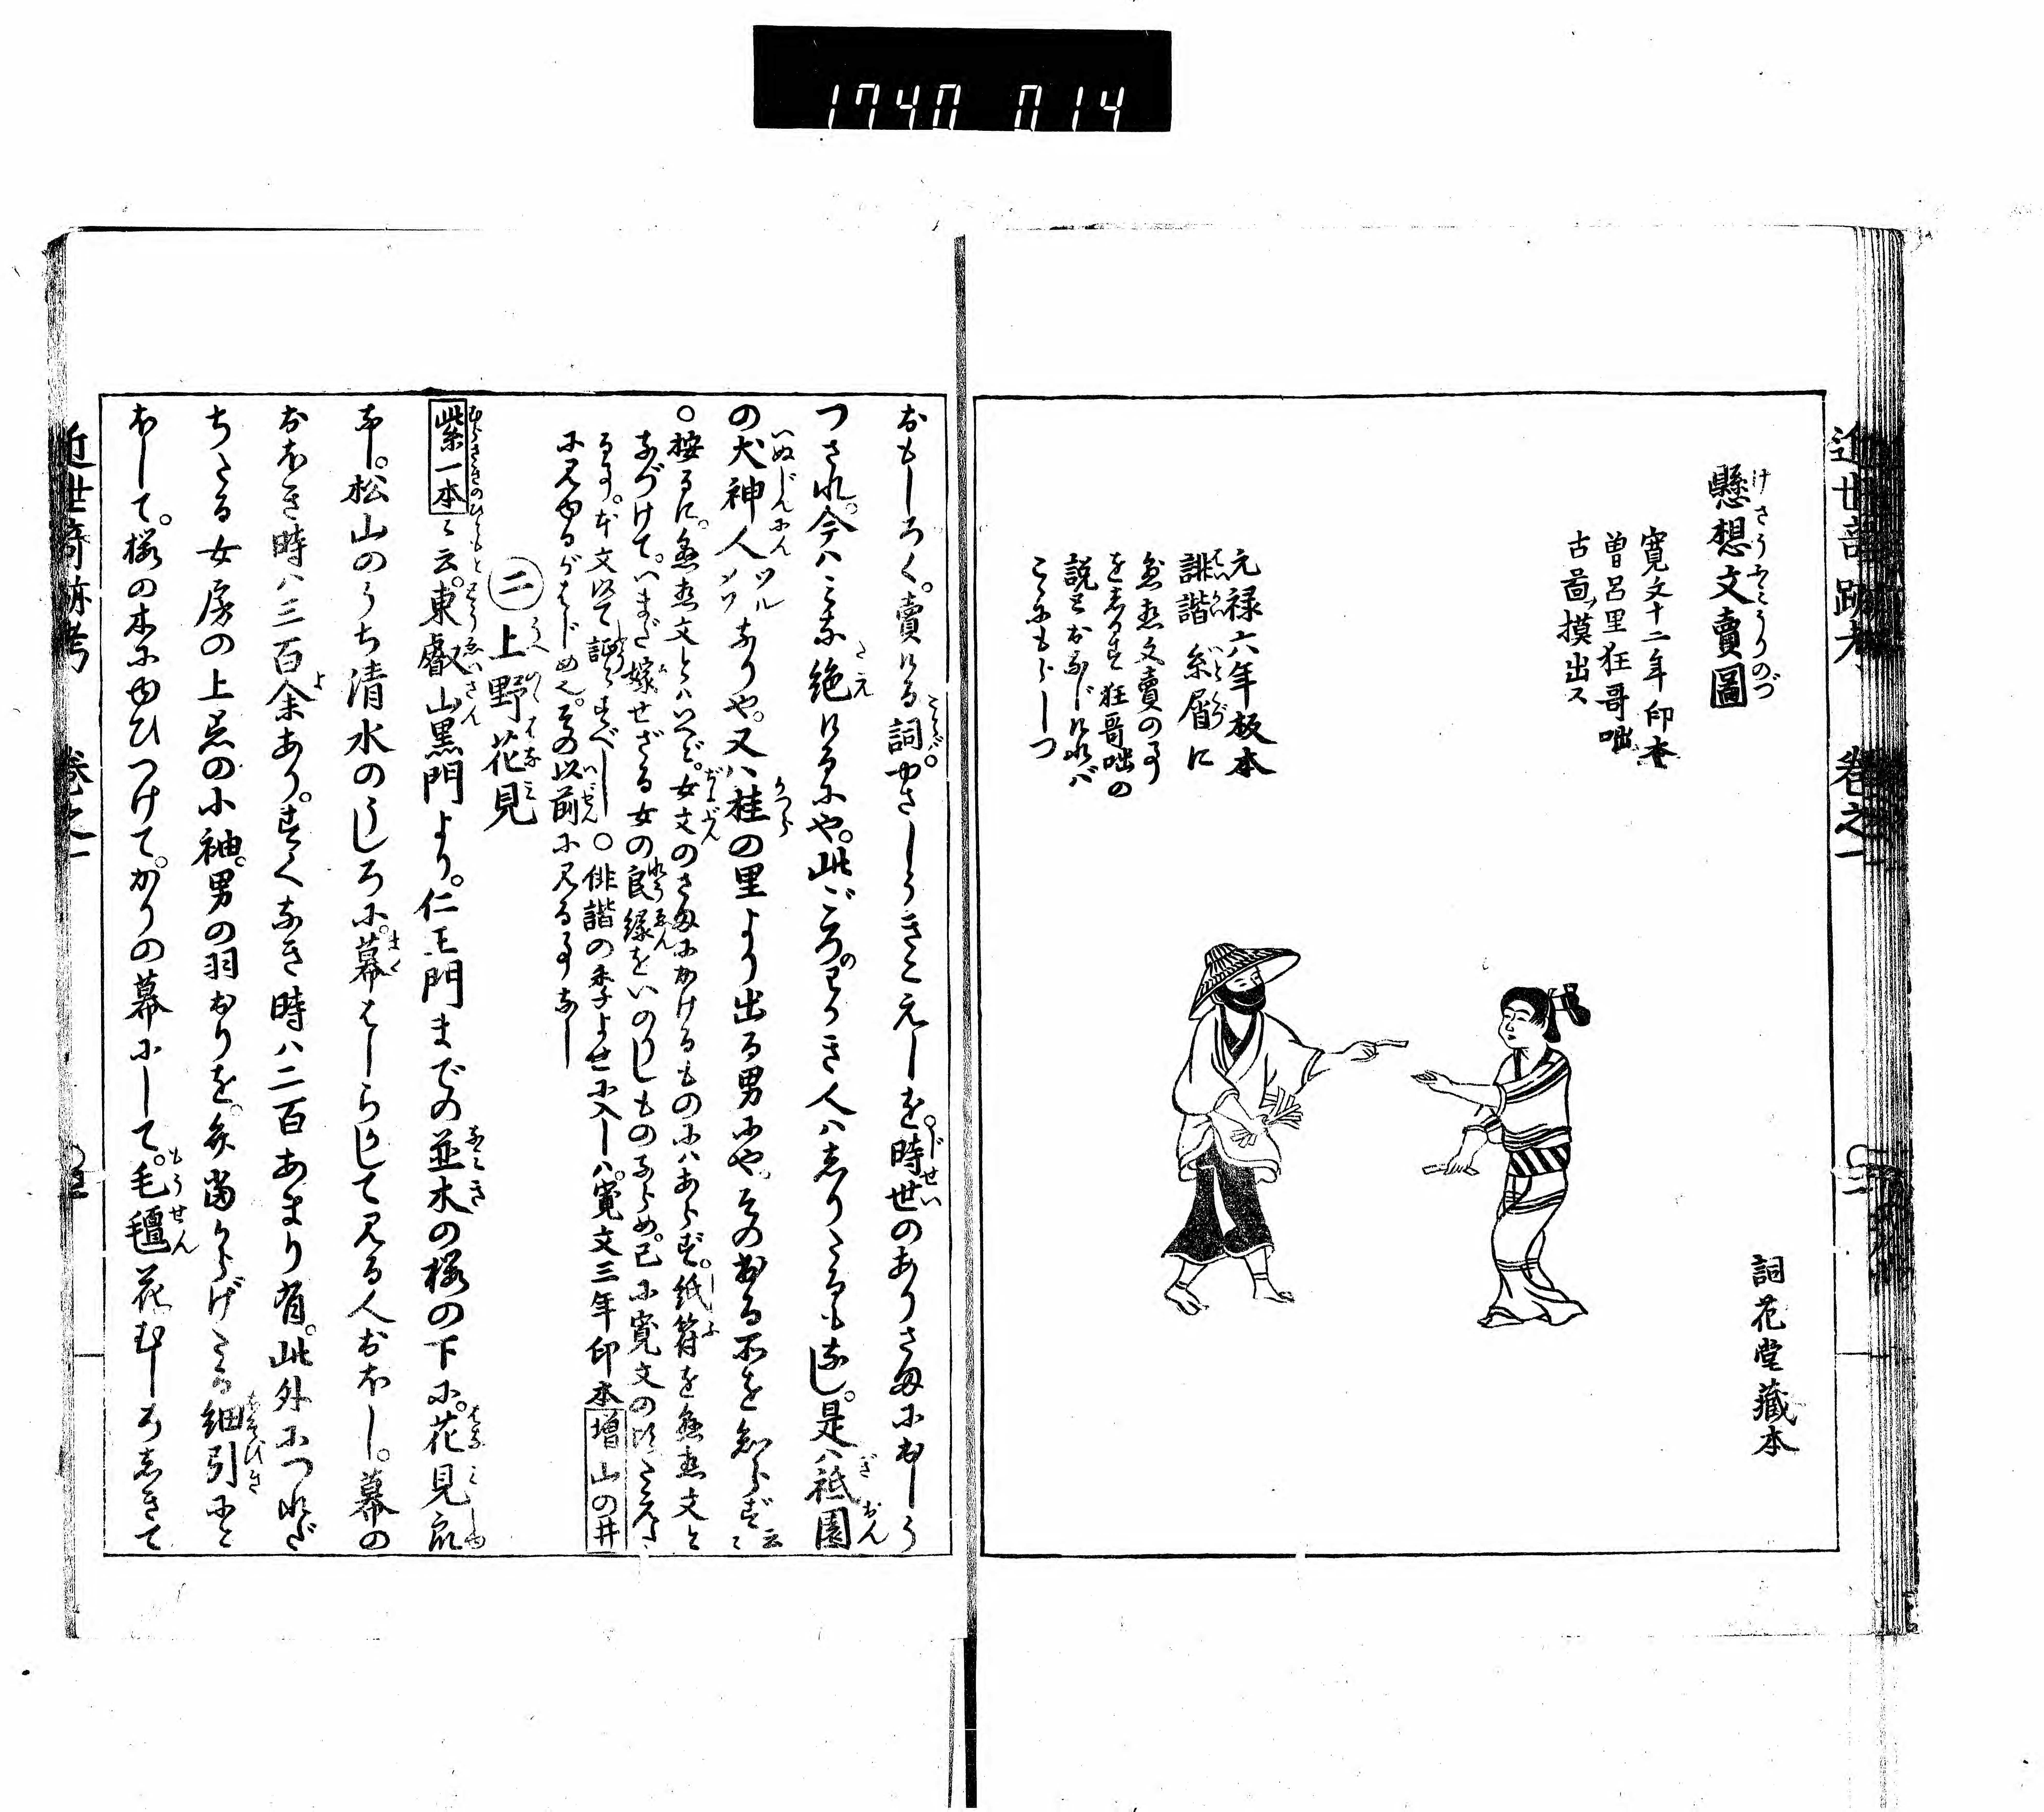 1740 014
懸想文賣圖
けさうふみうりのづ
寛文十二年印本
曽呂里狂哥咄
古啚ヲ摸出ス
詞花堂藏本
元禄六年板本
誹諧糸屑に
はいかい いとくづ
文賣の事
をしるす狂哥咄の
説とおなじけれバ
こゝにもらしつ
近世奇跡考 巻之一
おもしろく。賣ける詞。やさしうきこえしを。時世のありさまにおしう
つされ。今ハこれ絶けるにや。此ごろのわかき人ハしりたるもなし。是ハ祗園
の犬神人ツルメソなりや。又ハ桂の里より出る男にや。その出る所を知らず云々
○按るに。文とハいへど。女文のさまにかけるものにハあらず。紙符を文と
なづけて。いまだ嫁せざる女の良縁をいのりしものならめ。已に寛文の比たえた
る事。本文にて証すべし。○俳諧の季よせに入しハ。寛文三年印本増山の井
に見ゆるがはじめ也。その以前に見る事なし
二 上野花見
うへのゝはなみ
紫一本ニ云。東叡山黒門より。仁王門までの並木の桜の下に。花見衆
なし。松山のうち清水のうしろに。幕はしらかして見る人おほし。幕の
おほき時ハ三百余あり。すくなき時ハ二百あまり有。此外につれだ
ちたる女房の上着の小袖。男の羽おりを。弁當からげたる細引にと
ほして。桜の木にゆひつけて。かりの幕にして。毛氈花むしろしきて
近世奇跡考 巻之一